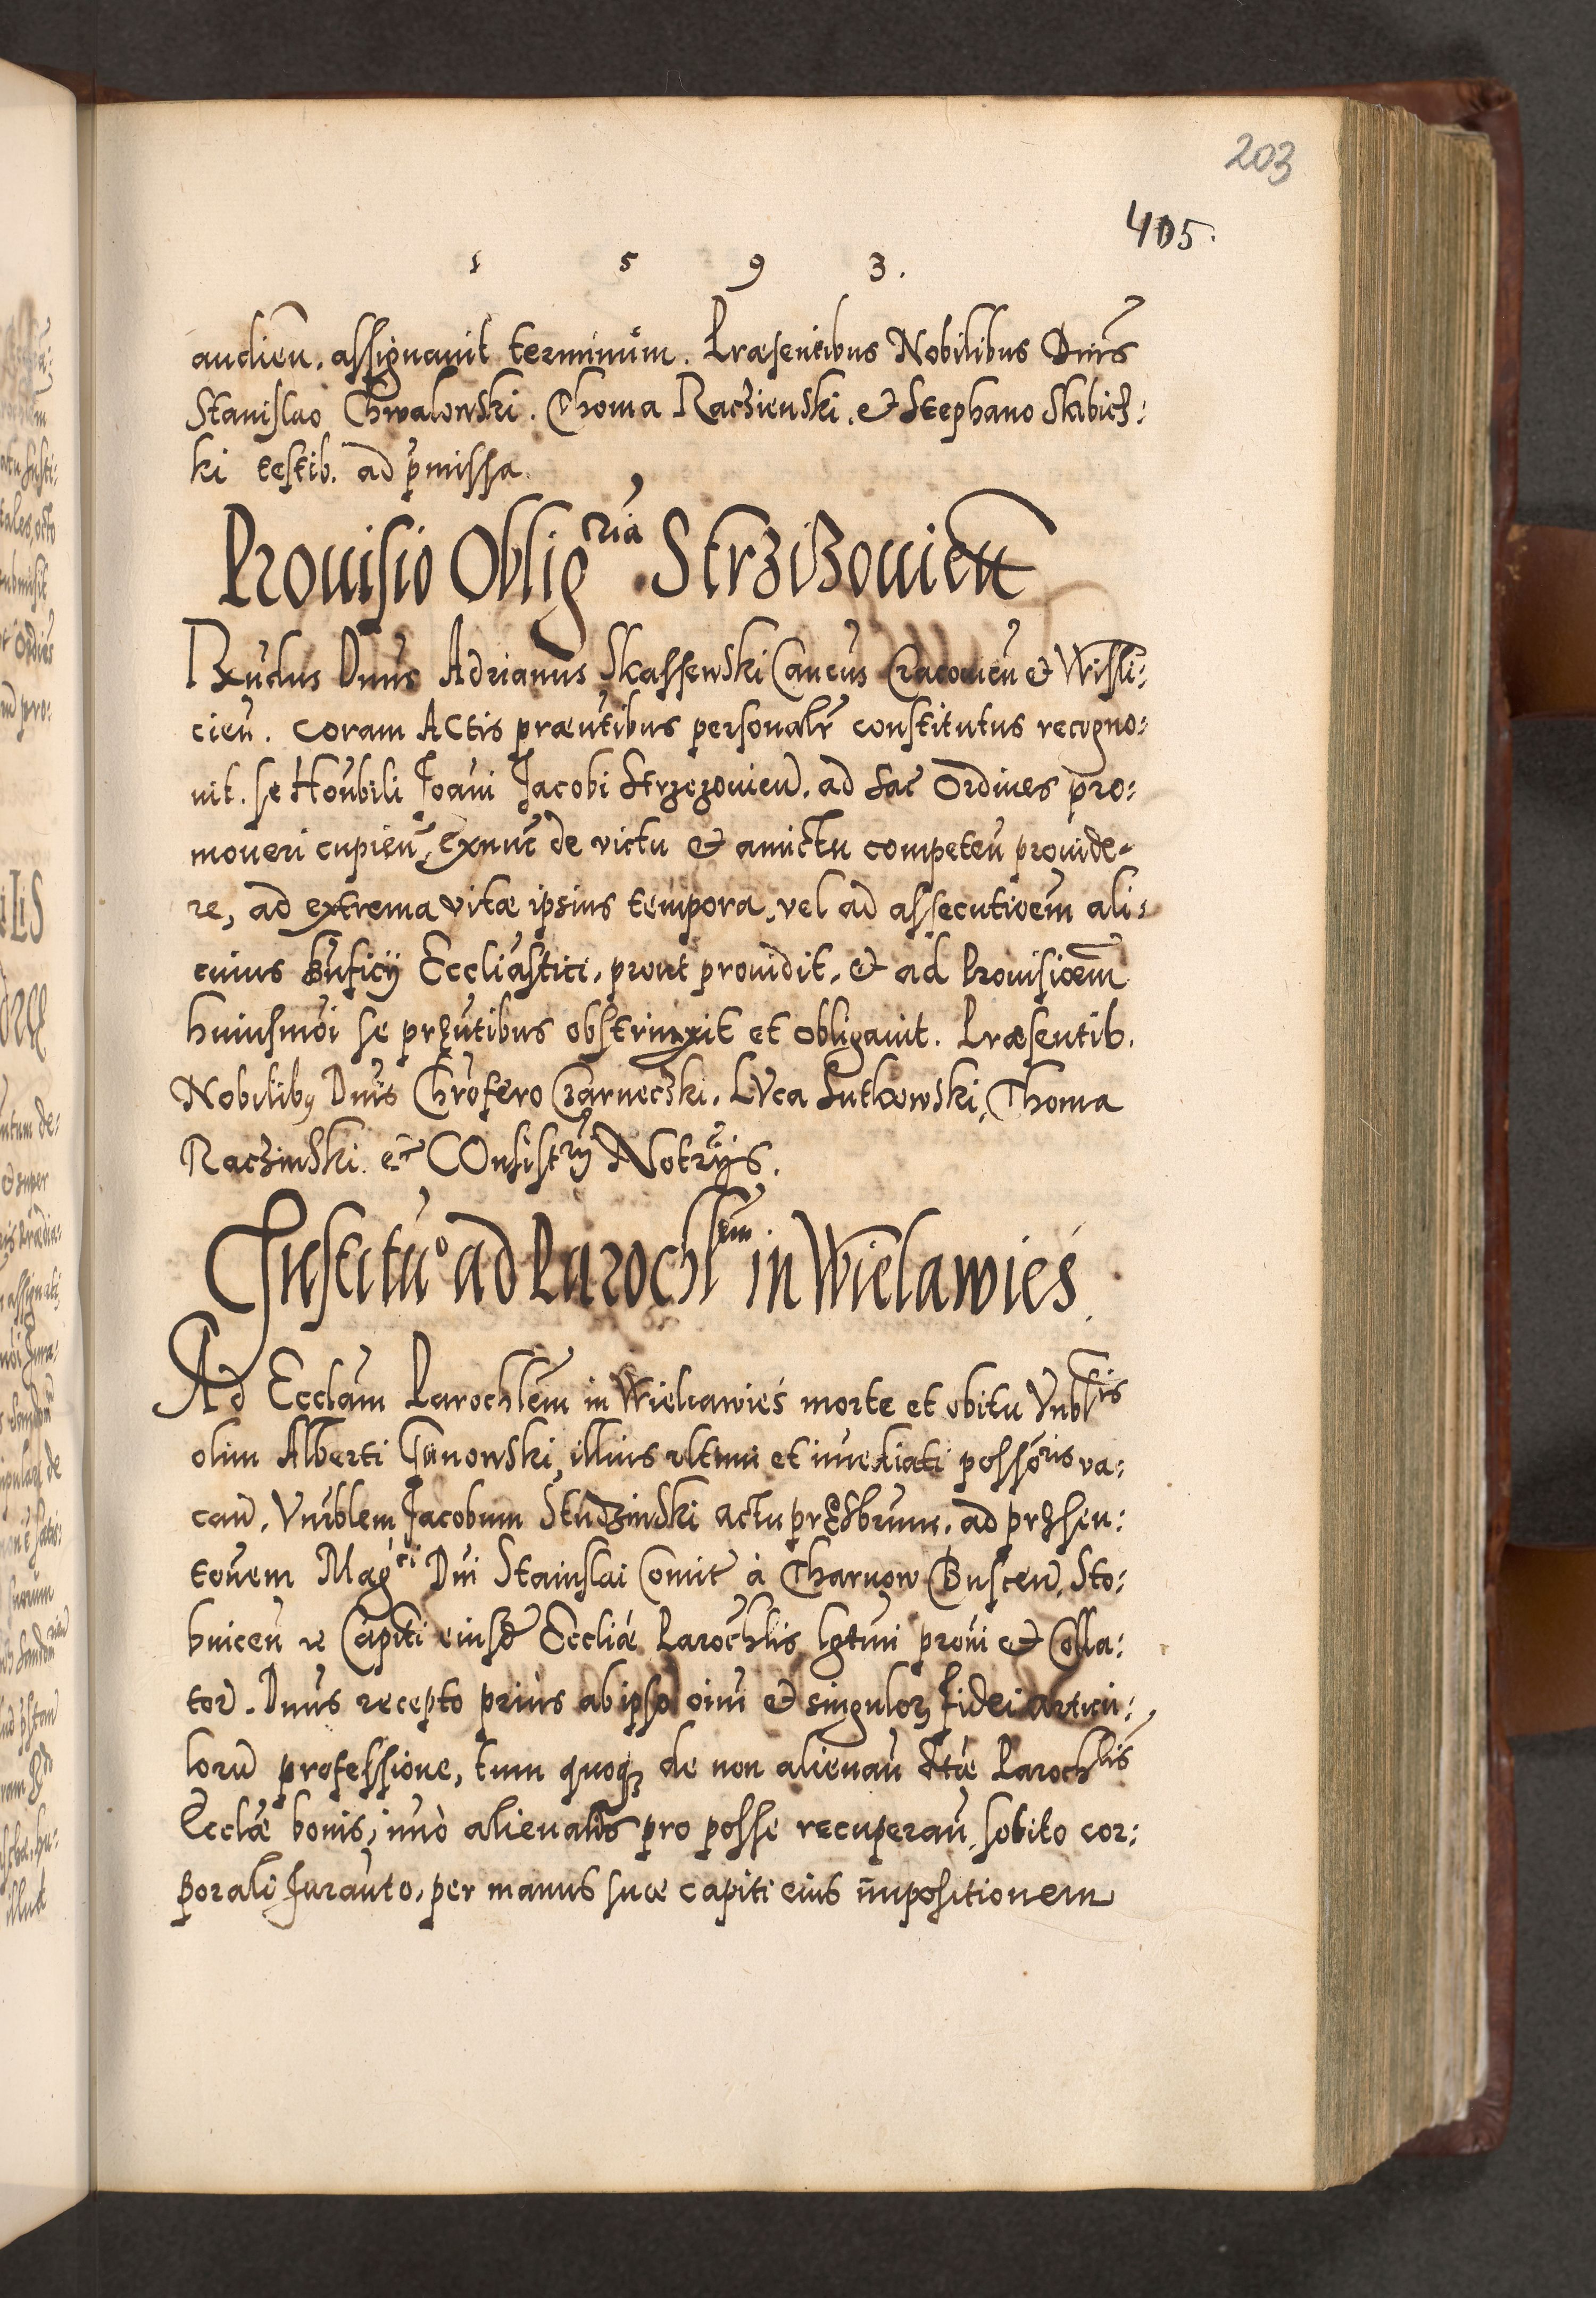 203
405.
1 5 9 3.
audien̄. assignavit terminum. Præsentibus Nobilibus Dnis
Stanislao Chwalowski. Thoma Raczienski. et Stephano Skibicz:
ki testib. ad p̄missa.
Provisio Oblig^ria Strzizovien̄
Rx̄ndus Dn̄us Adrianus Skassewski Can̄cus Cracovien̄ et Wisli:
cien̄. coram Actis præn̄tibus personalr̄ constitutus recogno:
vit. se Hon̄bili Joan̄i Jacobi Strzezovien̄. ad Sac̄ Ordines pro:
moveri cupien̄, exnunc̄ de victu et amictu competen̄ provide-
re, ad extrema vitæ ipsius tempora, vel ad assecutioem̄ ali:
cuius Bn̄ficij Eccliāstici, prout providit, et ad Provisioem̄
huiusmōi se prȩn̄tibus obstrinxit et obligavit. Præsentib.
Nobiliby Dn̄is Chrōfero Czarneczki. LVca Lutkowski, Thoma
Raczinski. et COnsist^rij Notr̄ijs.
Institu^o ad Paroch^lem in Wielawieś
Ad Ecclām Parochlēm in Wielawieś morte et obitu Vnbl^is
olim Alberti Gunowski, illius ultimi et im̄ediati possō^ris va:
can̄. Vn̄rblem Jacobum Studzinski actu prȩsbr̄um. ad prȩsen:
tōnem Mag^ci Dn̄i Stanislai Comit̄ à Tharnow Buscen̄, Sto:
bnicen̄ &c Capitī eiusd̄ Eccliæ Parochlis lgtmi provi et Colla:
tor̄. Dn̄us recepto prius ab ipso oim̄ et singulorȝ fidei articu:
lorū professione, tum quoqȝ de non alienan̄ dctæ Paroch^lis
Ecclæ bonis, imò alienatis pro posse recuperan̄. solito cor:
porali Juran̄to, per manus suæ capiti eius impositionem